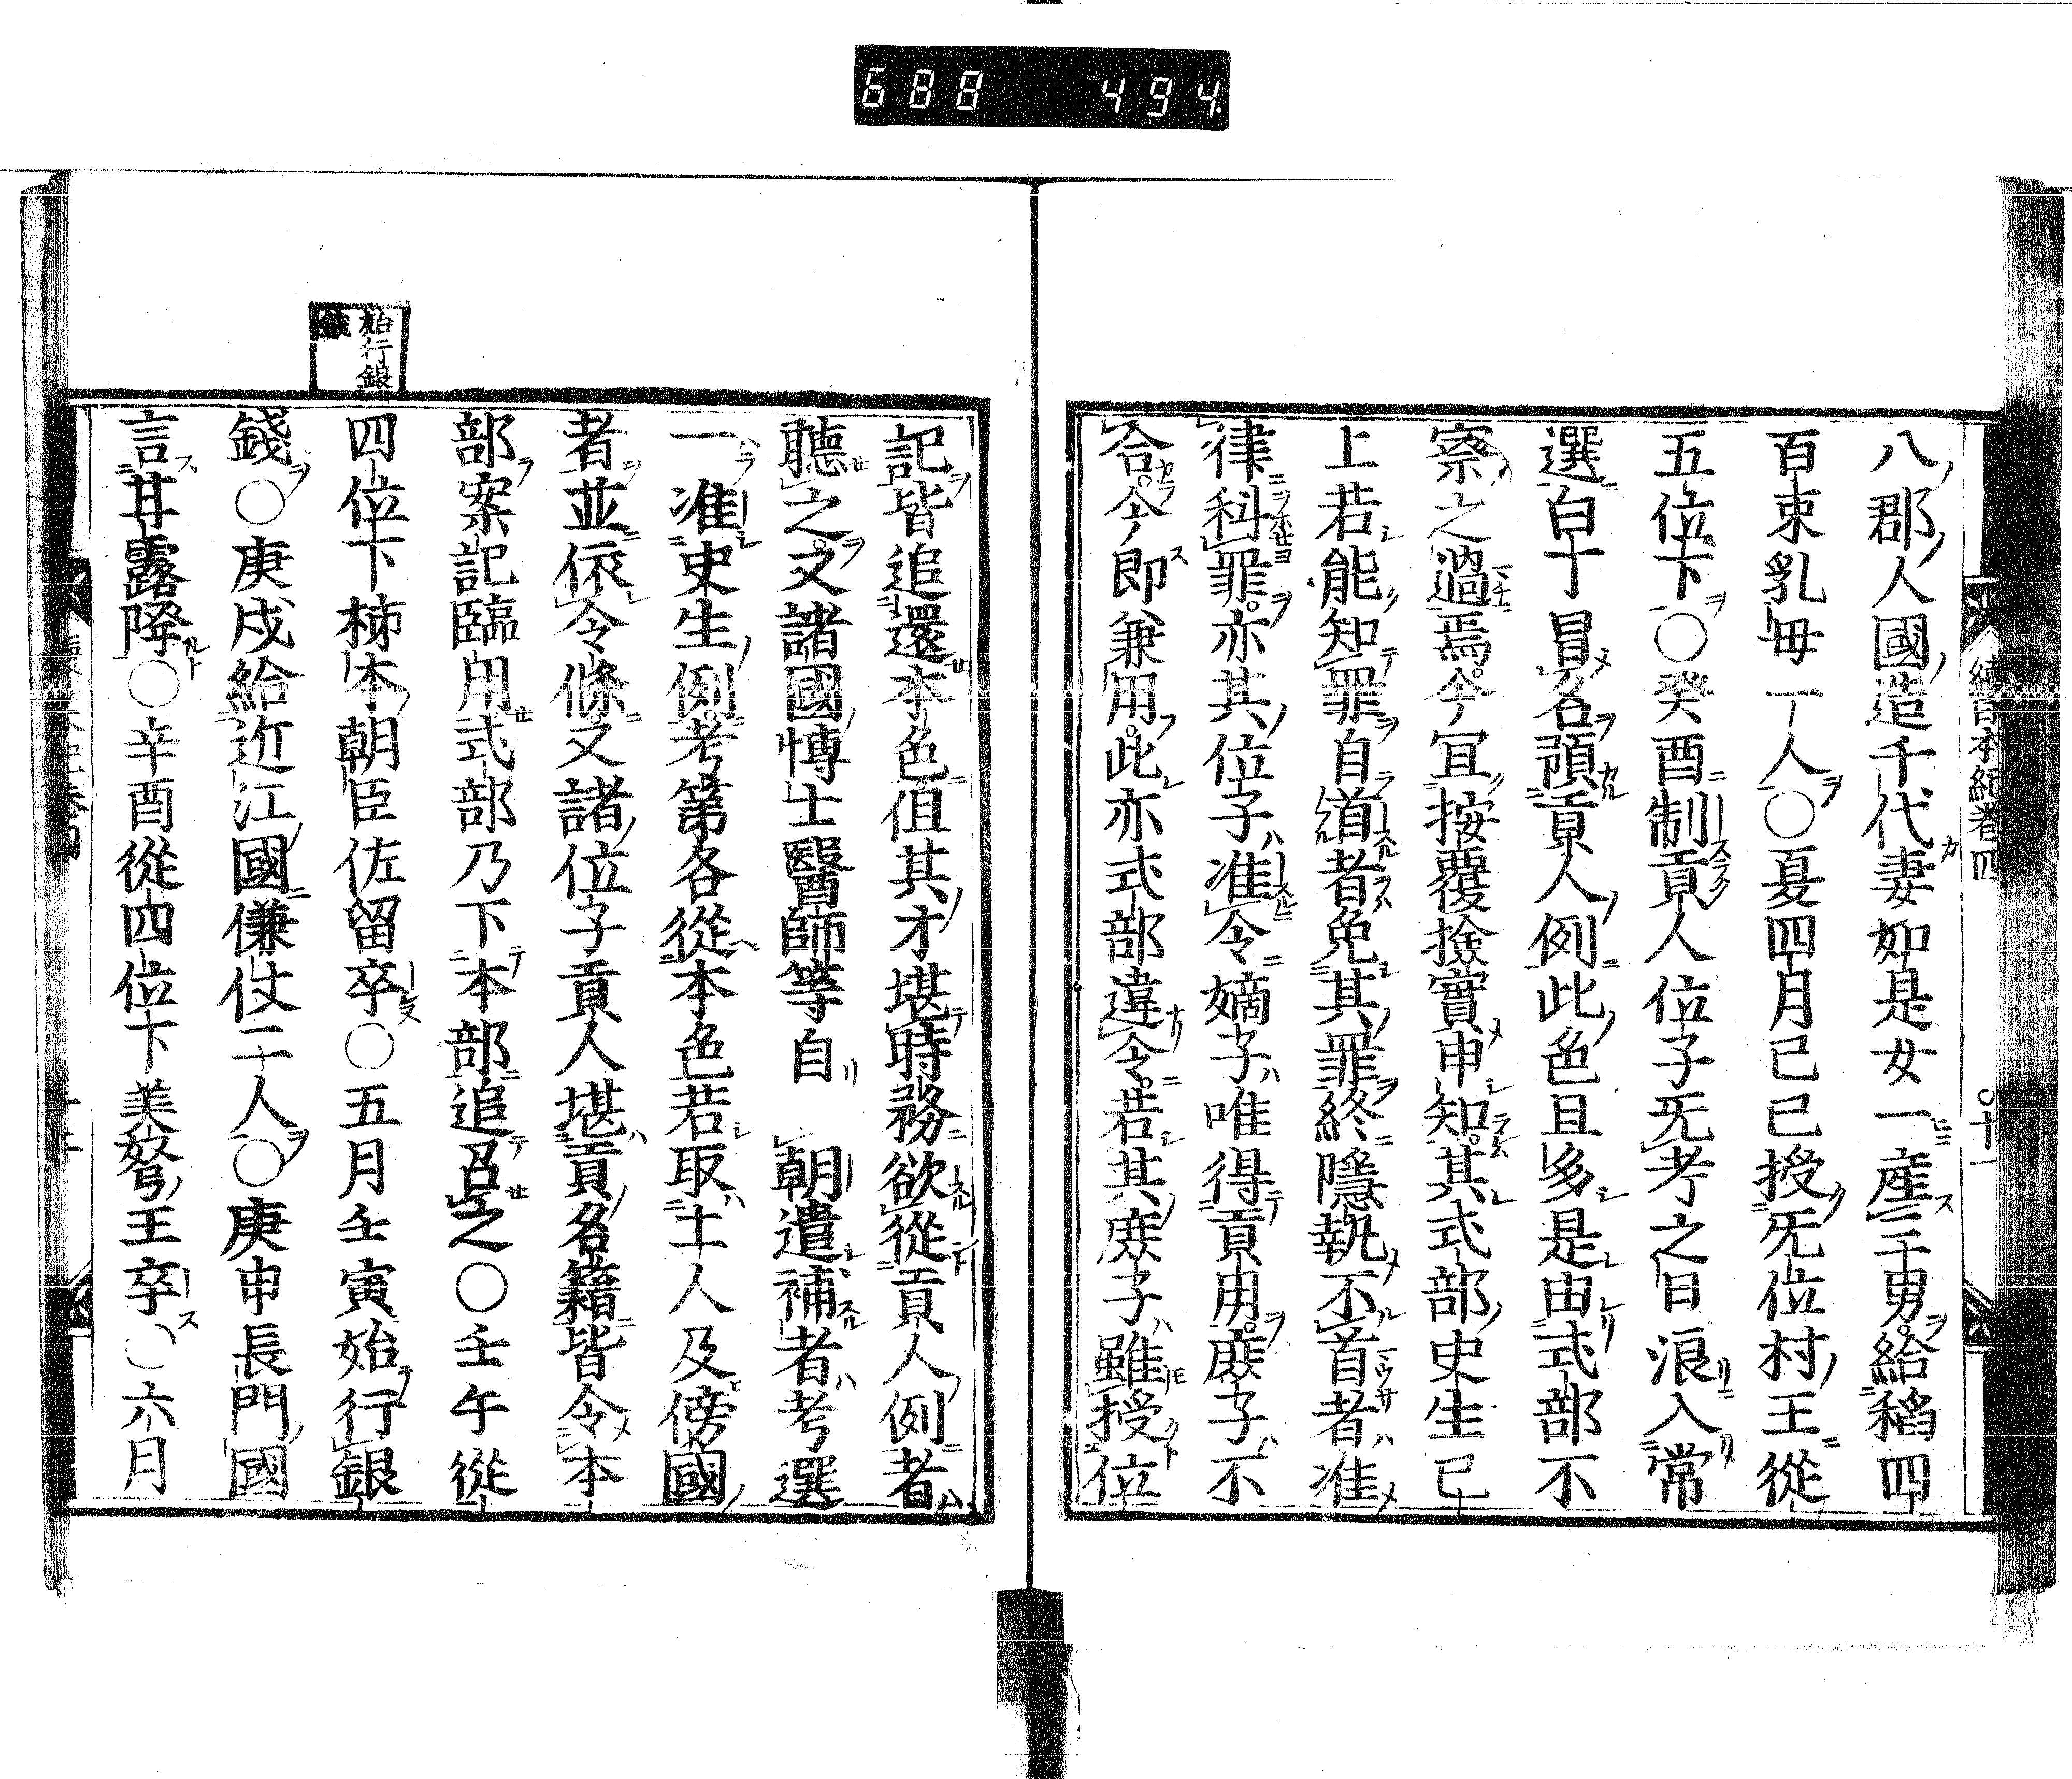 688 494
續日本紀卷四 十一
八郡人國造千代妻如是女一産三男給稻四
百束乳母一人○夏四月己巳授旡位村王從
五位下○癸酉制貢人位子旡考之日浪入常
選白丁冒名預貢人例此色且多是由式部不
察之過焉今冝按覆撿實申知其式部史生已
上若能知罪自道者免其罪終隱執不首者准
律科罪亦其位子准令嫡子唯得貢用庶子不
合今即兼用此亦式部違令若其庶子雖授位
記皆追還本色但其才堪時務欲從貢人例者
聽之又諸國博士醫師等自朝遣補者考選
一准史生例考第各從本色若取土人及傍國
者並依令條又諸位子貢人堪貢名籍皆令本
部案記臨用式部乃下本部追召之○壬午從
四位下柿本朝臣佐留卒○五月壬寅始行銀
錢○庚戌給近江國傔仗二人○庚申長門國
言甘露降○辛酉從四位下美努王卒○六月
始行銀
錢